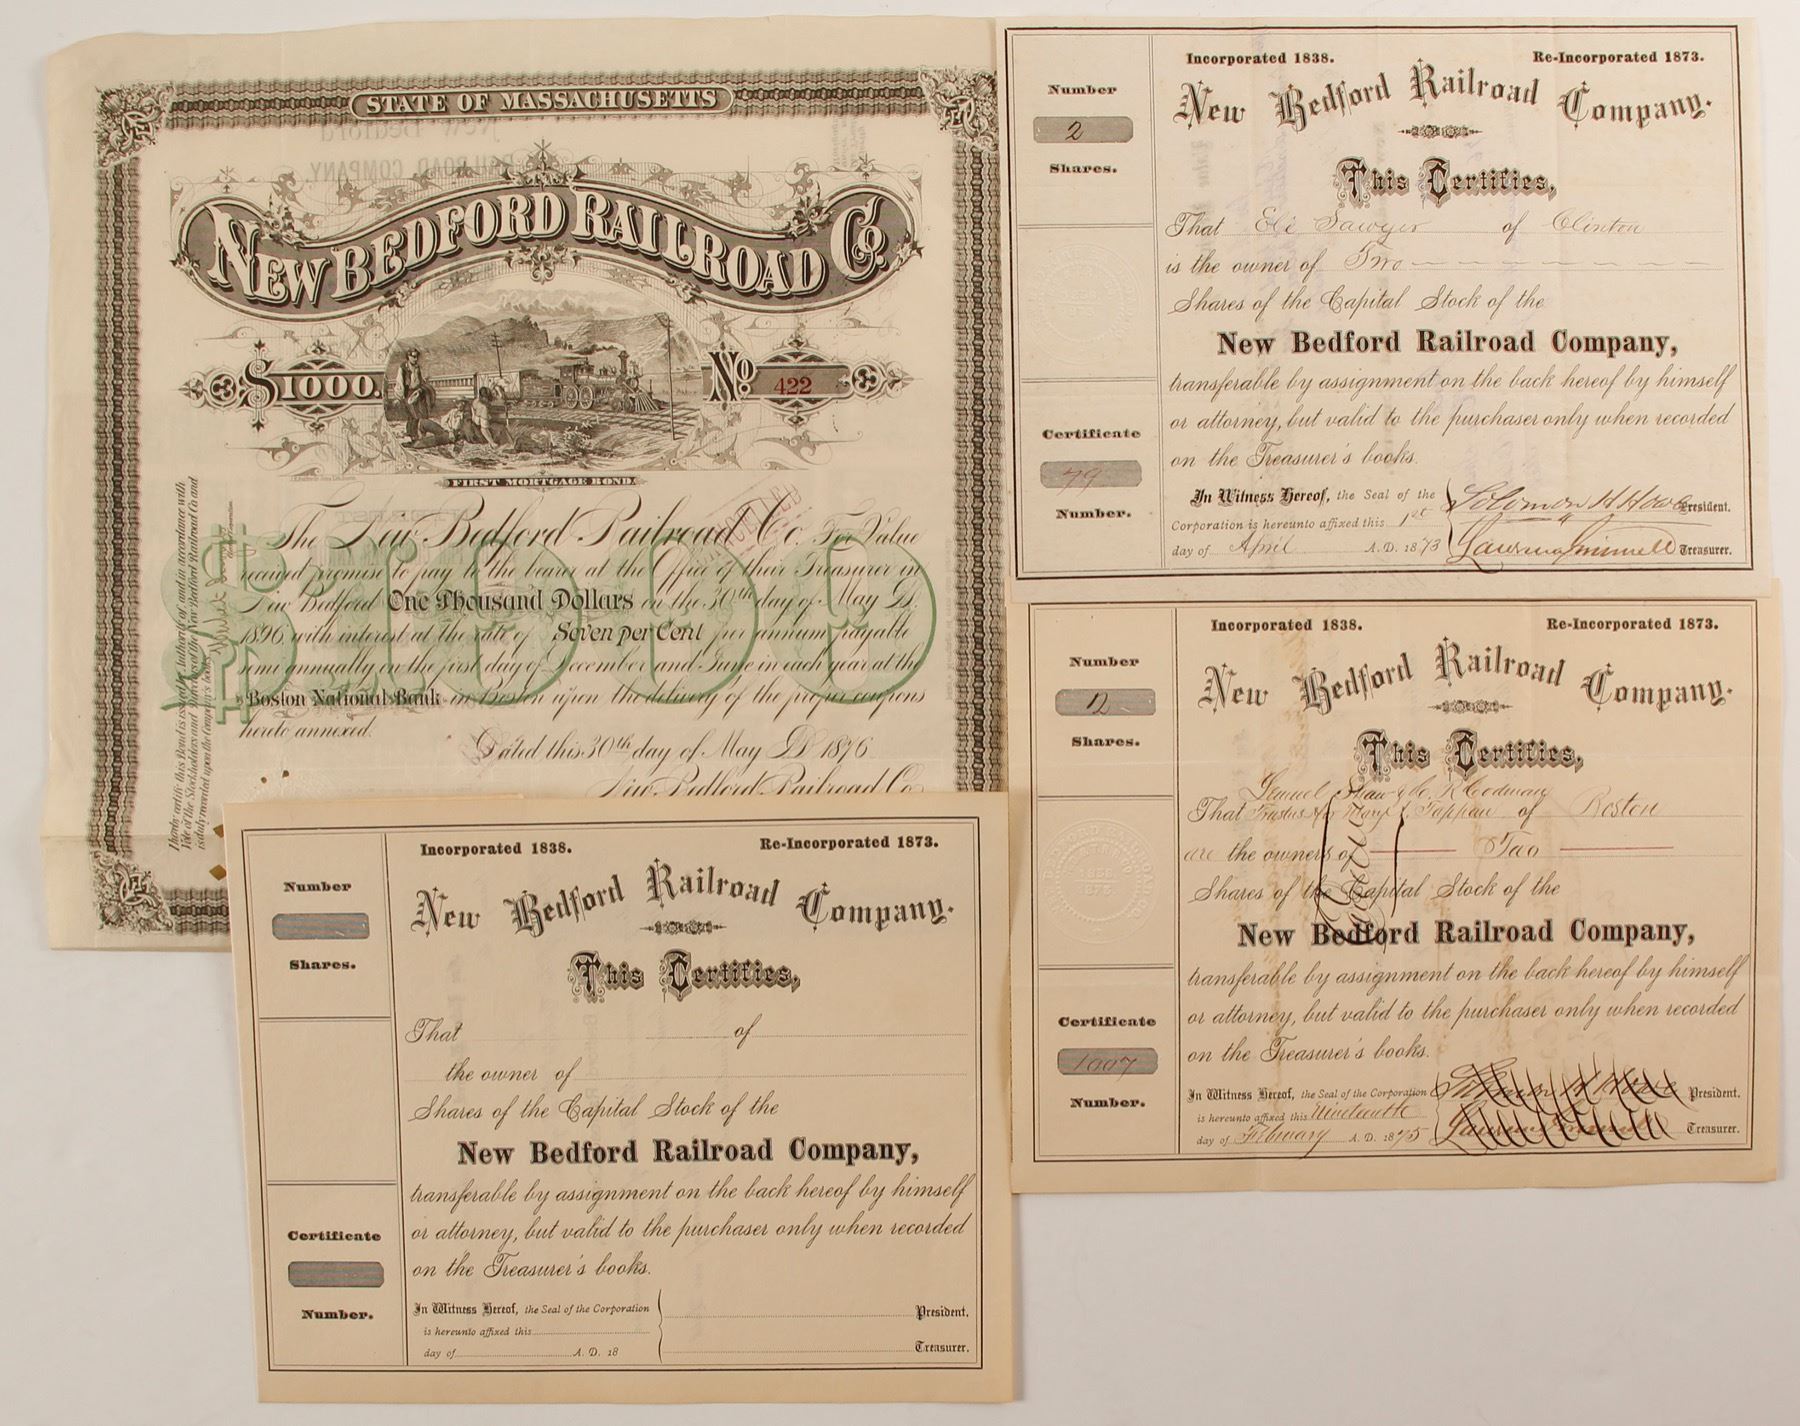 STATE OF MASSACHUSETTS
New Bedford
RAILROAD COMPANY.
NEW BEDFORD RAILROAD Co.
$1000.
No. 422
FIRST MORTGAGE BOND.
The New Bedford Railroad Co. For Value
received promise to pay to the bearer at the Office of their Treasurer in
New Bedford One Thousand Dollars on the 30th day of May A.D.
1896, with interest at the rate of Seven per Cent per annum payable
semi annually on the first day of December and June in each year at the
Boston National Bank in Boston upon the delivery of the proper coupons
hereto annexed.
Dated this 30th day of May A.D. 1876
New Bedford Railroad Co.
$1000
I hereby certify this Bond is issued by Authority of and in accordance with
Vote of the Stockholders and Directors of the New Bedford Railroad Co and
is duly recorded upon the Company's books.
Incorporated 1838.
Re-Incorporated 1873.
New Bedford Railroad Company.
Number
2
Shares.
This Certifies,
That Eli Sawyer of Clinton
is the owner of Two
Shares of the Capital Stock of the
New Bedford Railroad Company,
transferable by assignment on the back hereof by himself
or attorney, but valid to the purchaser only when recorded
on the Treasurer's books.
Certificate
79
Number.
In Witness Hereof, the Seal of the
Corporation is hereunto affixed this 1st
day of April A. D. 1873
Solomon H Howe President.
Treasurer.
Incorporated 1838.
Re-Incorporated 1873.
New Bedford Railroad Company.
Number
Shares.
This Certifies,
Samuel Shaw & C. R. Codman
That Trustees for Mary S. Tappan of Boston
are the owners of Two
Shares of the Capital Stock of the
New Bedford Railroad Company,
transferable by assignment on the back hereof by himself
or attorney, but valid to the purchaser only when recorded
on the Treasurer's books.
Certificate
1007
Number.
In Witness Hereof, the Seal of the Corporation
is hereunto affixed this Nineteenth
day of February A. D. 1875
Solomon H Howe President.
Treasurer.
Incorporated 1838.
Re-Incorporated 1873.
New Bedford Railroad Company.
Number
Shares.
This Certifies,
That of
the owner of
Shares of the Capital Stock of the
New Bedford Railroad Company,
transferable by assignment on the back hereof by himself
or attorney, but valid to the purchaser only when recorded
on the Treasurer's books.
Certificate
Number.
In Witness Hereof, the Seal of the Corporation
is hereunto affixed this
day of A. D. 18
President.
Treasurer.